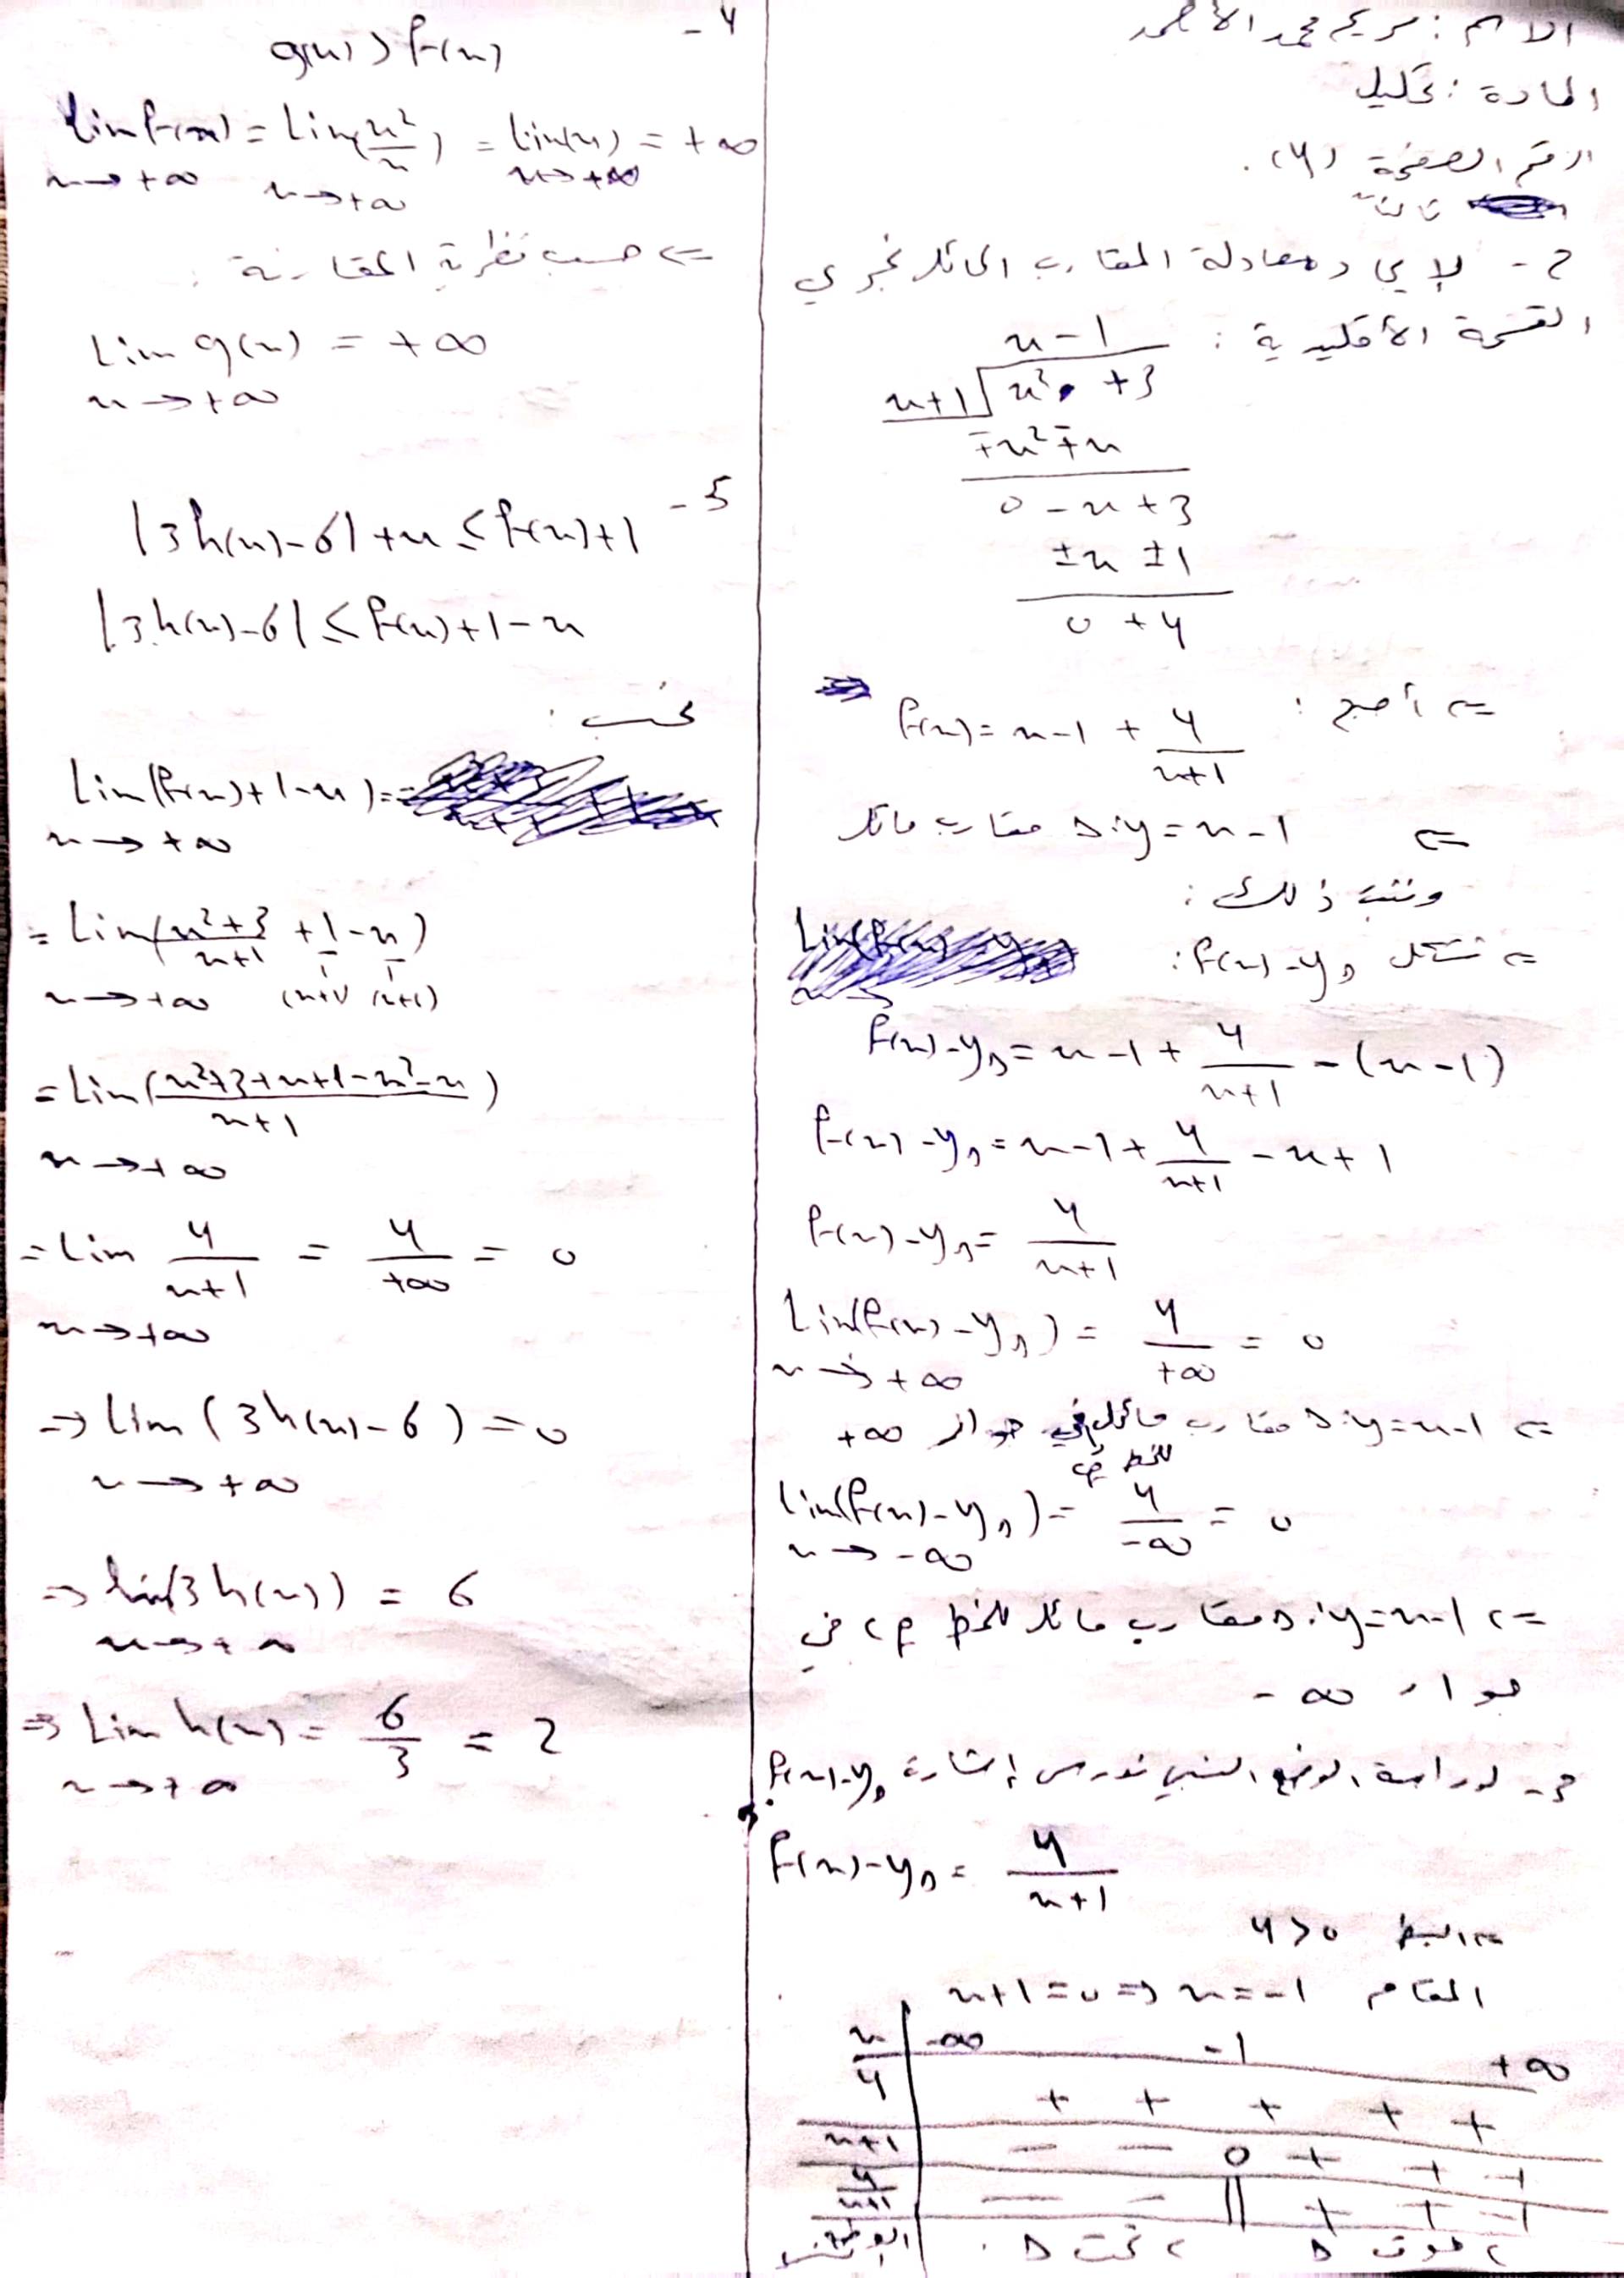 الاسم : مريم محمد الأحمد
المادة : تحليل
رقم الصفحة (4) .
ثالثاً
2 - لإيجاد معادلة المقارب المائل نجري
القسمة الأقليدية :
x-1
x+1 x² +3
∓x² ∓x
0 - x + 3
±x ±1
0 + 4
⇐ أصبح : f(x) = x-1 + 4/(x+1)
⇐ Δ: y = x-1 مقارب مائل
ونثبت ذلك :
⇐ نشكل f(x) - yΔ :
f(x) - yΔ = x-1 + 4/(x+1) - (x-1)
f(x) - yΔ = x-1 + 4/(x+1) - x + 1
f(x) - yΔ = 4/(x+1)
Lim(f(x) - yΔ) = 4/+∞ = 0
x → +∞
⇐ Δ: y = x-1 مقارب مائل للخط c في جوار +∞
Lim(f(x) - yΔ) = 4/-∞ = 0
x → -∞
⇐ Δ: y = x-1 مقارب مائل للخط c في
جوار -∞
3 - لدراسة الوضع النسبي ندرس إشارة f(x) - yΔ
f(x) - yΔ = 4/(x+1)
⇐ البسط 4 > 0
المقام x+1 = 0 ⇒ x = -1
x -∞ -1 +∞
4 + + + + +
x+1 - - 0 + + +
4/(x+1) - - || + + +
الوضع النسبي c تحت Δ c فوق Δ
4 -
g(x) > f(x)
Lim f(x) = Lim(x²/x) = Lim(x) = +∞
x → +∞ x → +∞ x → +∞
⇐ حسب نظرية المقارنة :
Lim g(x) = +∞
x → +∞
5 -
|3h(x) - 6| + x ≤ f(x) + 1
|3h(x) - 6| ≤ f(x) + 1 - x
نحسب :
Lim(f(x) + 1 - x) =
x → +∞
= Lim(x²+3/(x+1) + 1/1 - x/1)
x → +∞ (x+1) (x+1)
= Lim((x²+3+x+1-x²-x)/(x+1))
x → +∞
= Lim 4/(x+1) = 4/+∞ = 0
x → +∞
⇒ Lim (3h(x) - 6) = 0
x → +∞
⇒ Lim(3h(x)) = 6
x → +∞
⇒ Lim h(x) = 6/3 = 2
x → +∞